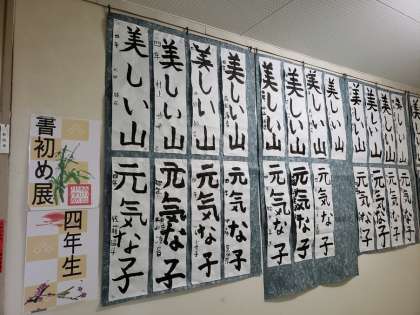 書初め展
四年生
美しい山
美しい山
美しい山
美しい山
美しい山
美しい山
美しい山
美しい山
美しい山
美しい山
元気な子
元気な子
元気な子
元気な子
元気な子
元気な子
元気な子
元気な子
元気な子